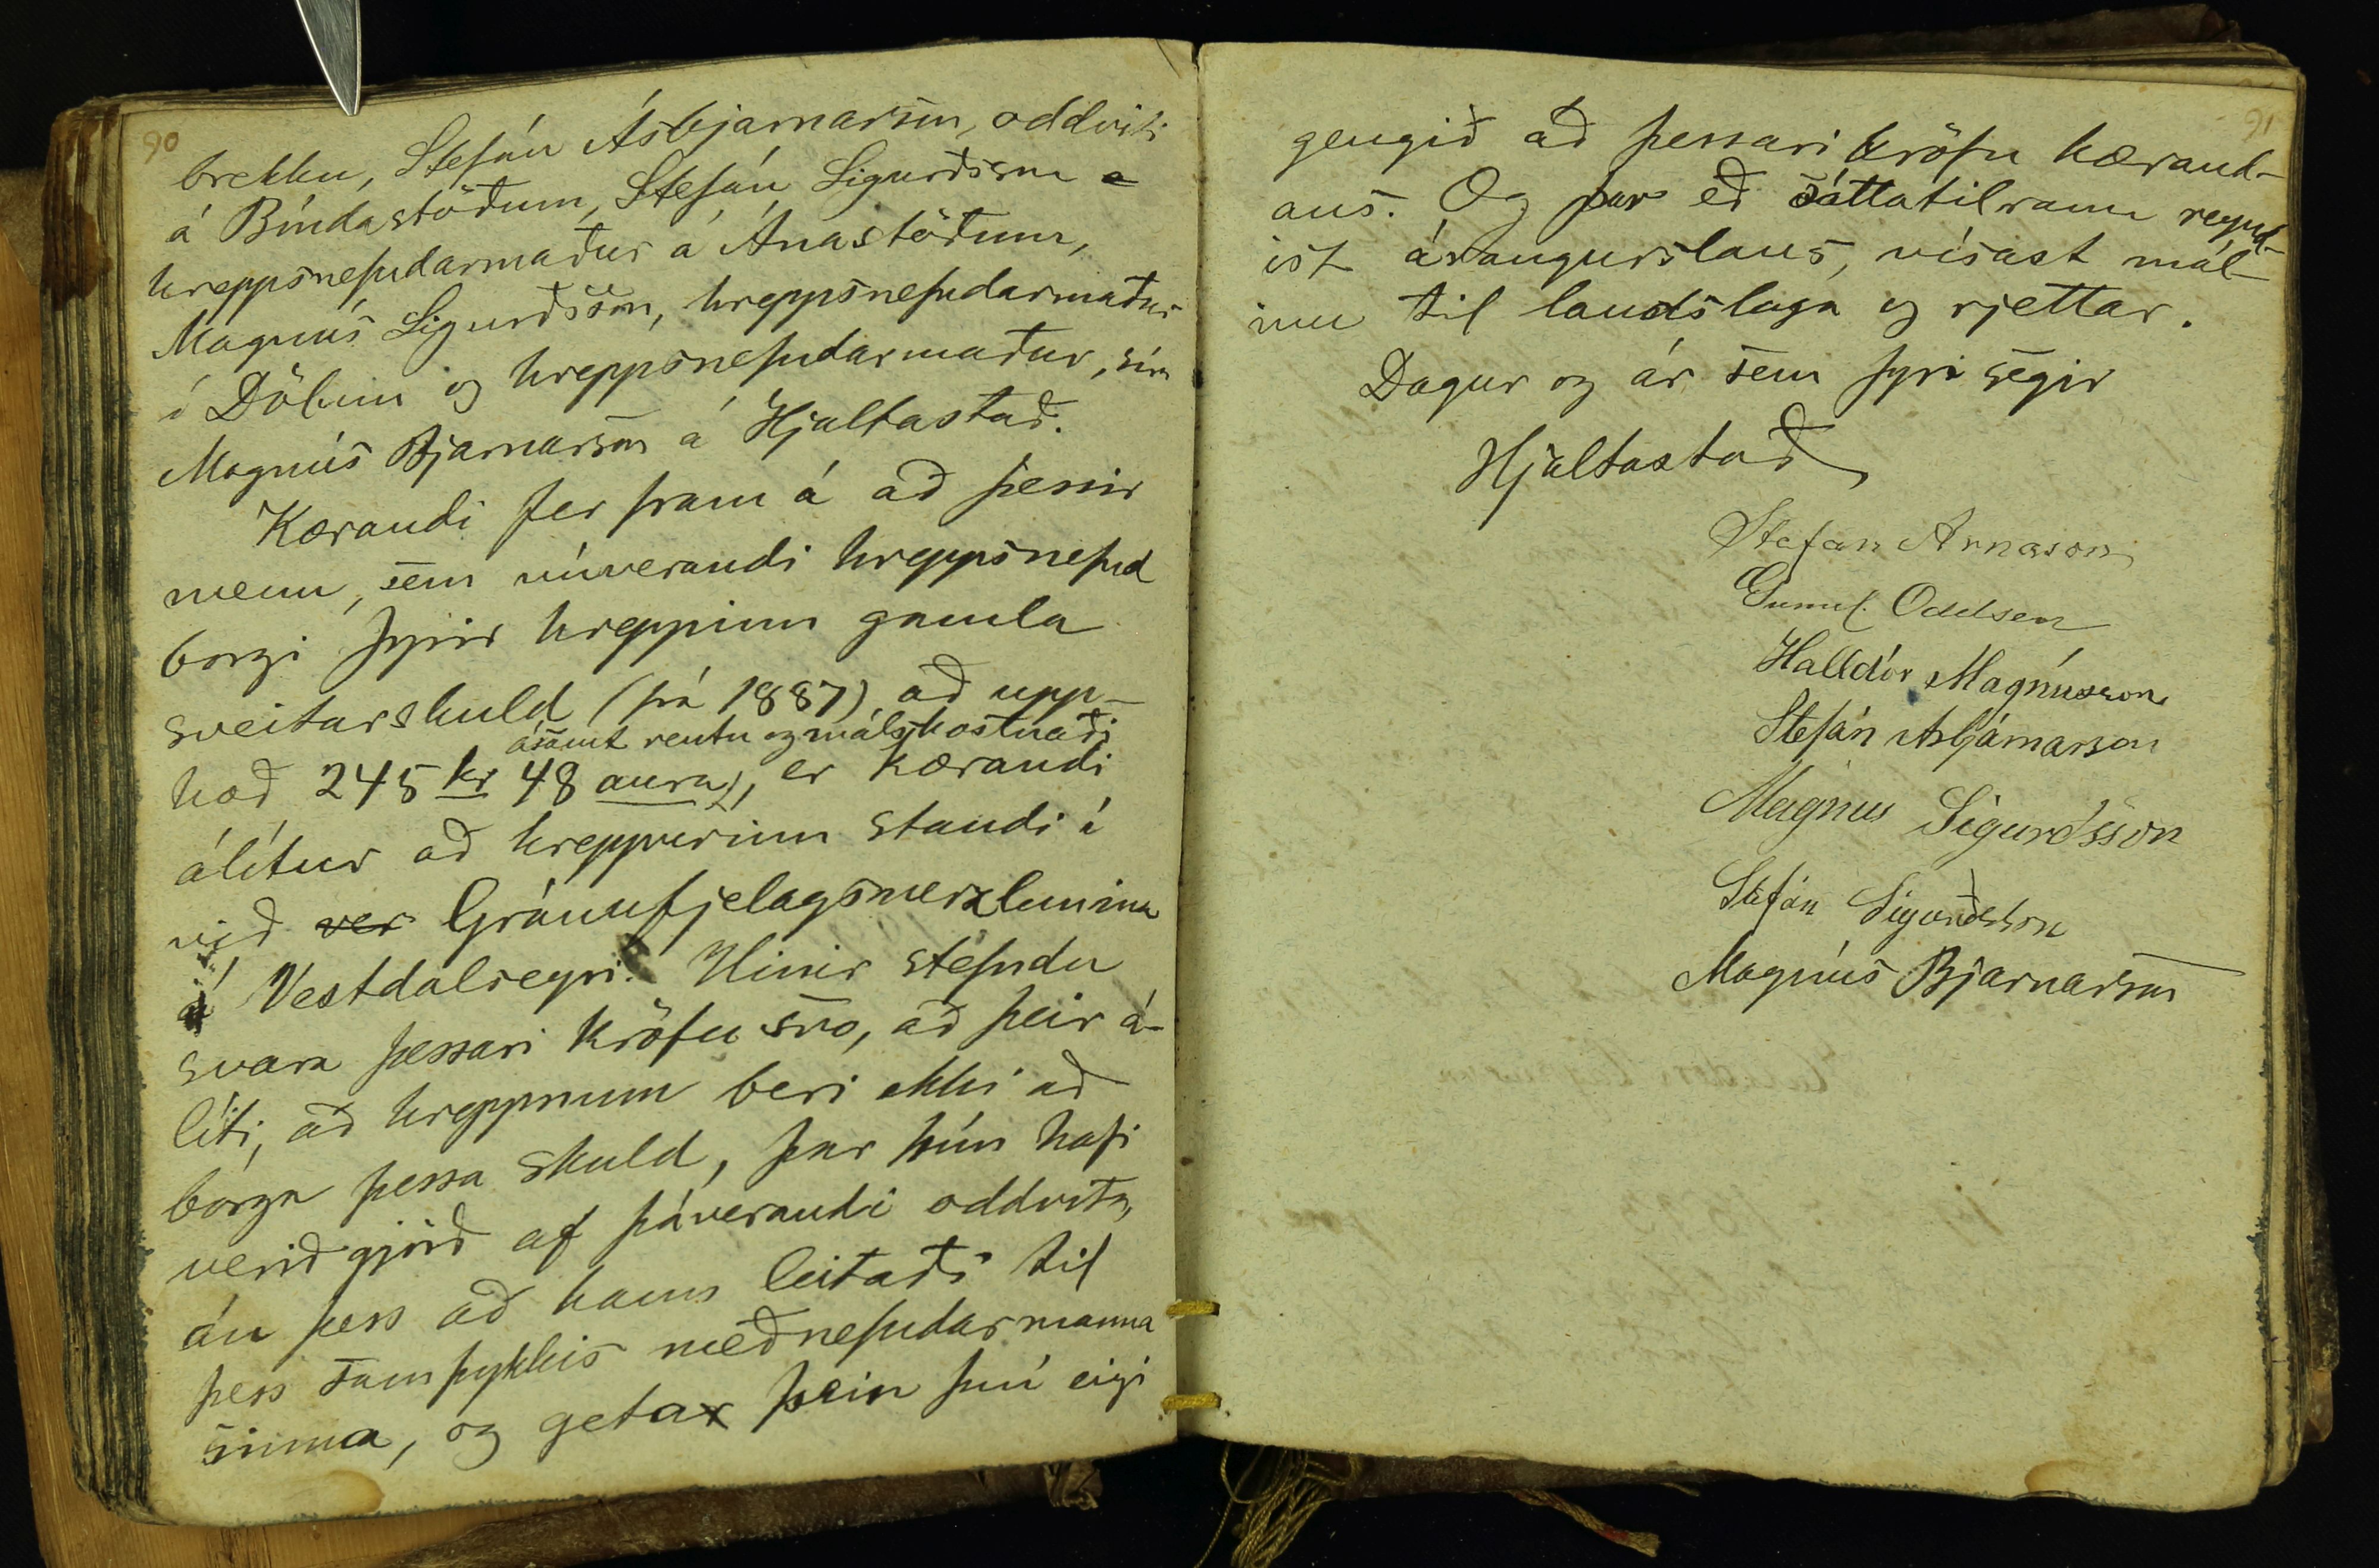 90
brekku, Stefán Ásbjarnarson, oddviti
á Bóndastöðum, Stefán Sigurðsson
hreppsnefndarmaður á Ánastöðum,
Magnús Sigurðsson, hreppsnefndarmaður
í Dölum og hreppsnefndarmaður, síra
Magnús Bjarnarson á Hjaltastað.
Kærandi fer fram á að þessir
menn, sem núverandi hreppsnefnd
borgi fyrir hreppinn gamla
sveitarskuld (frá 1887) að upp-
ásamt rentu og málskostnaði
hæð 245 kr 48 aura, er kærandi
álítur að hreppurinn standi í
við ver Gránufjelagsverzlunina
á Vestdalseyri. Hinir stefndu
svara þessari kröfu svo, að þeir á-
líti, að hreppnum beri ekki að
borga þessa skuld, þar hún hafi
verið gjörð af þáverandi oddvita,
án þess að hann leitaði til
þess samþykkis meðnefndarmanna
sinna, og geta þeir því eigi
91
gengið að þessari kröfu kærand-
ans. Og þar eð sáttatilraun reynd-
ist árangurslaus, vísast mál-
inu til landslaga og rjettar.
Dagur og ár sem fyr segir
Hjaltastað
Stefan Arnason
Gunnl. Oddsen
Halldór Magnússon
Stefán Asbjarnarson
Magnus Sigurðsson
Stefán Sigurðsson
Magnús Bjarnarson